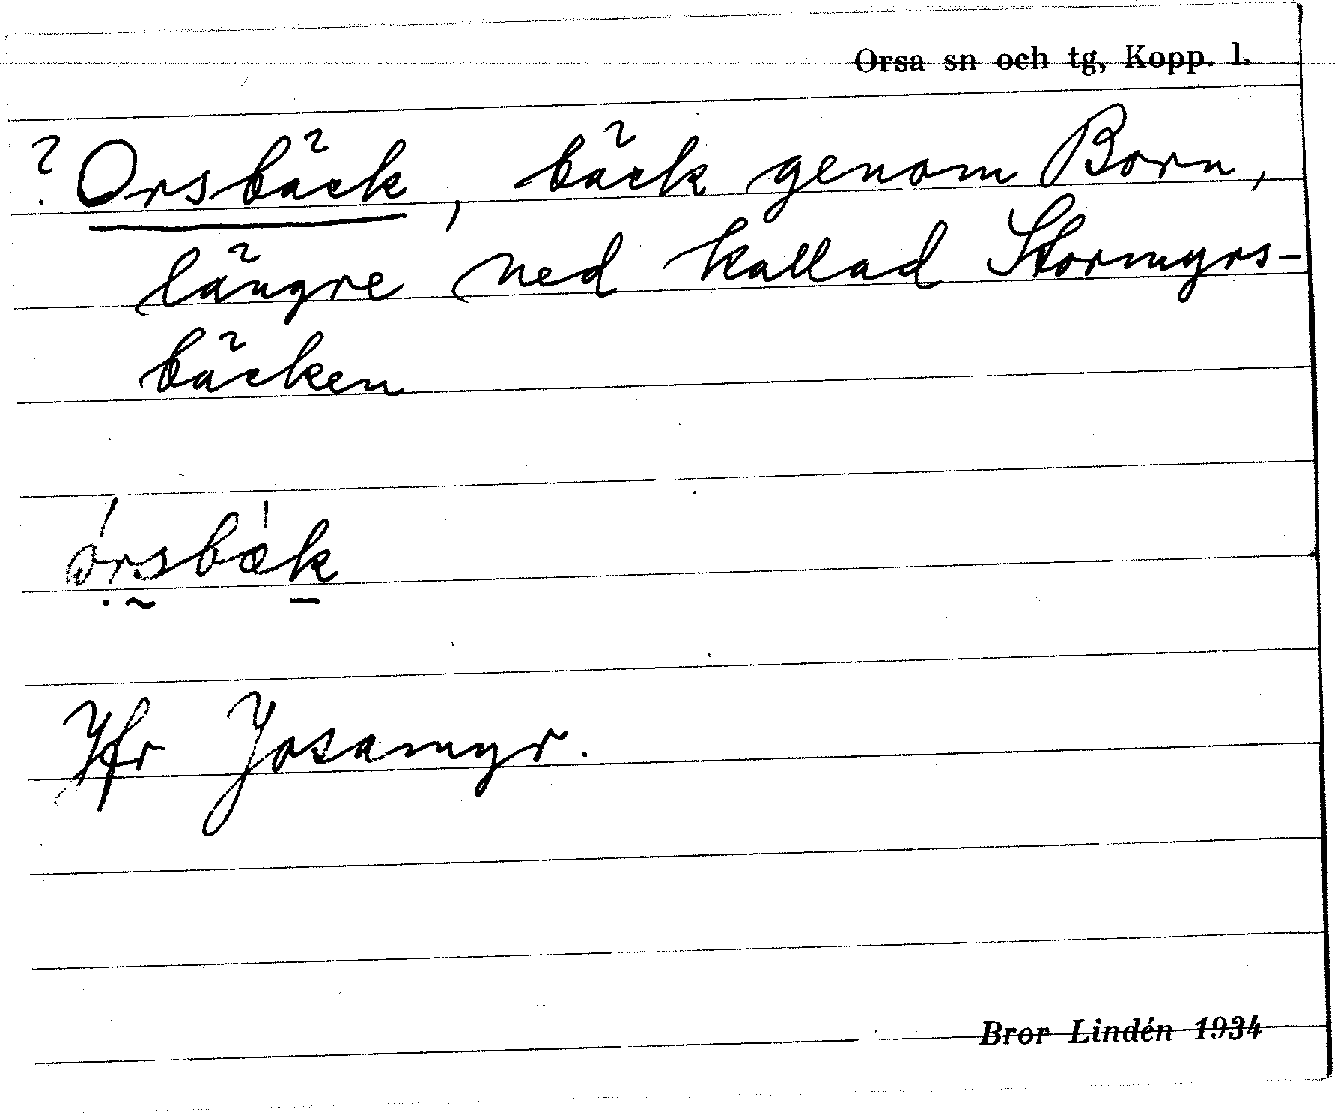 Orsa sn och tg, Kopp. l.
? Orsbäck, bäck genom Born,
längre ned kallad Stormyrs-
bäcken
órsbæ̀k
Jfr Josamyr.
Bror Lindén 1934